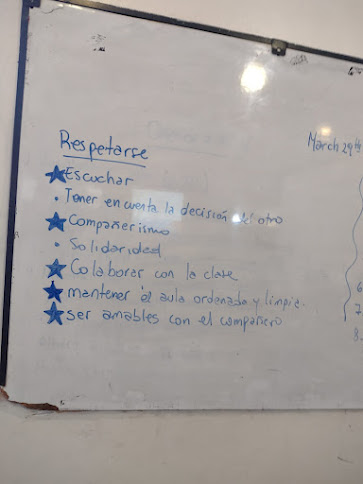 Respetarse
★ Escuchar
• Tener en cuenta la decisión del otro
★ Compañerismo
• Solidaridad
★ Colaborar con la clase
★ mantener el aula ordenada y limpia.
★ ser amables con el compañero
March 29th
6
7
8